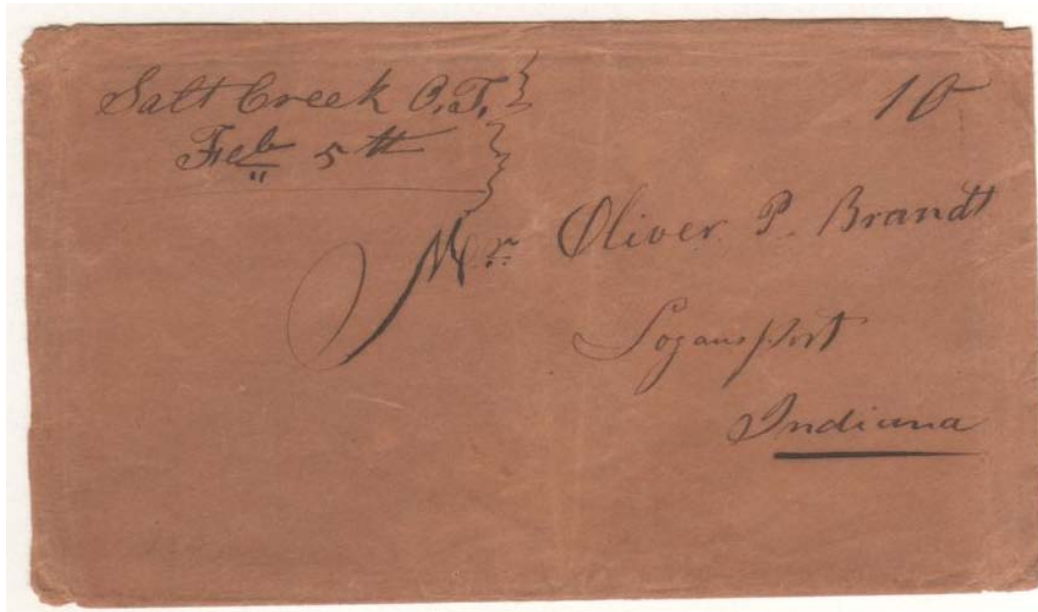 Salt Creek O.T.
Feb 5th
10
Mr. Oliver P. Brandt
Logansport
Indiana